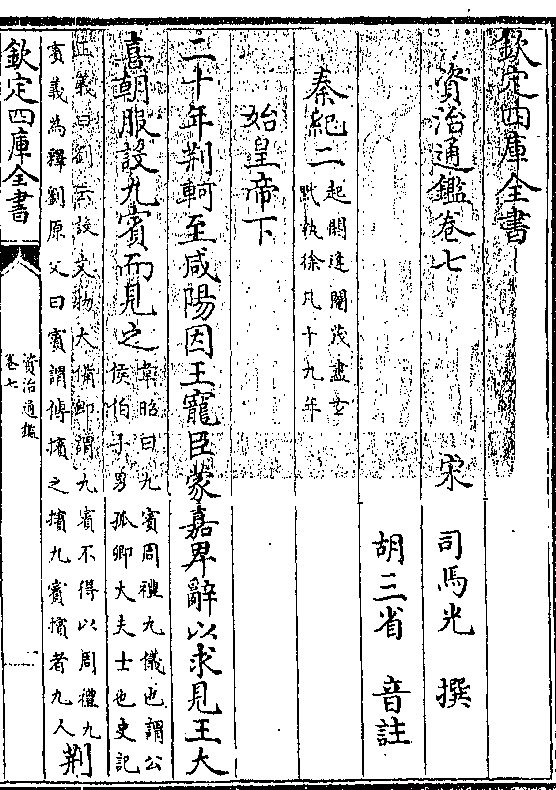 欽定四庫全書
資治通鑑卷七
宋 司馬光 撰
胡三省 音註
秦紀二
起閼逢閹茂盡玄
黓執徐凡十九年
始皇帝下
二十年荆軻至咸陽因王寵臣蒙嘉卑辭以求見王大
喜朝服設九賓而見之
韋昭曰九賓周禮九儀也謂公
侯伯子男孤卿大夫士也史記
正義曰劉云設文物大備即謂九賓不得以周禮九
賓義為釋劉原父曰賓謂傳擯之擯九賓擯者九人
荆
欽定四庫全書
資治通鑑
卷七
一